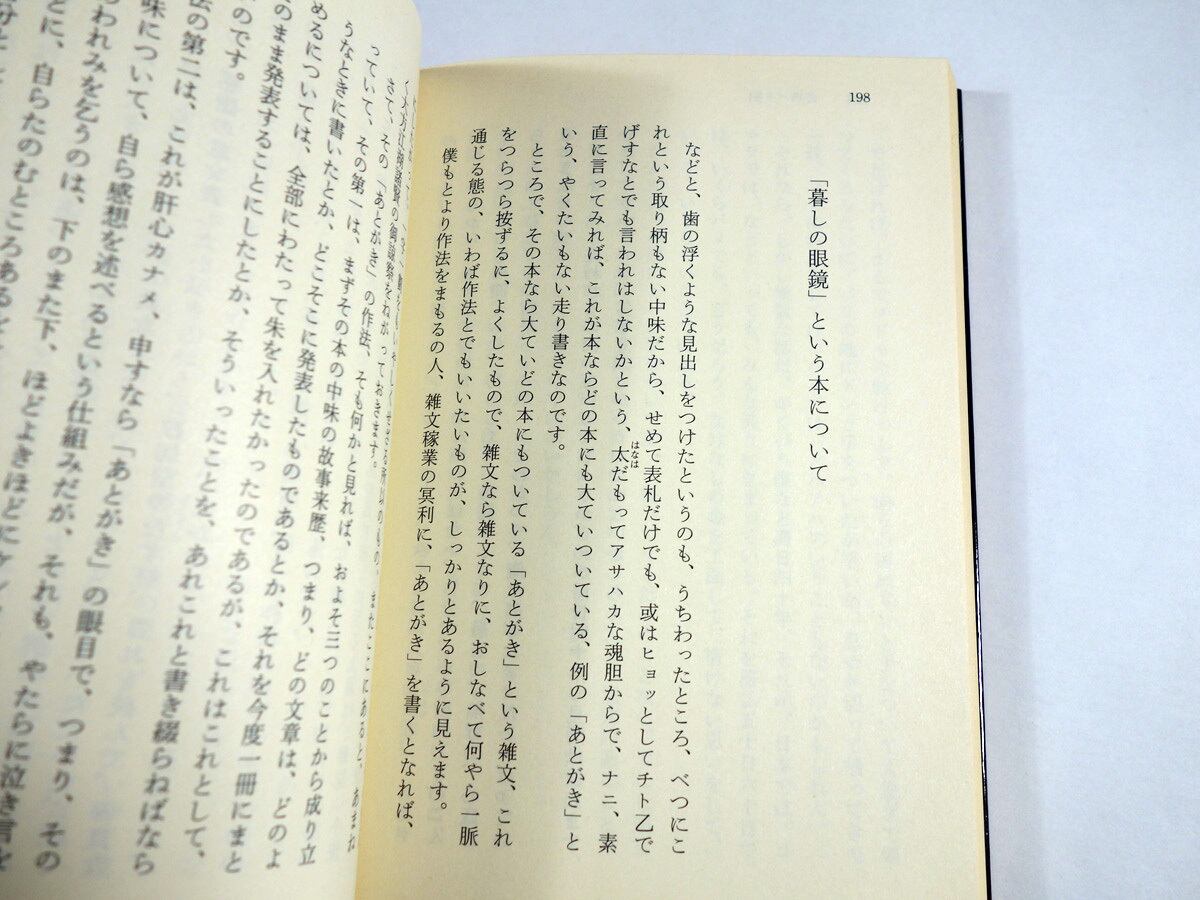 198
「暮しの眼鏡」という本について
などと、歯の浮くような見出しをつけたというのも、うちわったところ、べつにこ
れという取り柄もない中味だから、せめて表札だけでも、或はヒョッとしてチト乙で
げすなとでも言われはしないかという、太だもってアサハカな魂胆からで、ナニ、素
はなは
直に言ってみれば、これが本ならどの本にも大ていついている、例の「あとがき」と
いう、やくたいもない走り書きなのです。
ところで、その本なら大ていどの本にもついている「あとがき」という雑文、これ
をつらつら按ずるに、よくしたもので、雑文なら雑文なりに、おしなべて何やら一脈
通じる態の、いわば作法とでもいいたいものが、しっかりとあるように見えます。
僕もとより作法をまもるの人、雑文稼業の冥利に、「あとがき」を書くとなれば、
く大方江湖諸賢の御諒察をねがっておきます。
さて、その「あとがき」の作法、そも何かと見れば、およそ三つのことから成り立
っていて、その第一は、まずその本の中味の故事来歴、つまり、どの文章は、どのよ
うなときに書いたとか、どこそこに発表したものであるとか、それを今度一冊にまと
めるについては、全部にわたって朱を入れたかったのであるが、これはこれとして、
のまま発表することにしたとか、そういったことを、あれこれと書き綴らねばなら
のです。
法の第二は、これが肝心カナメ、申すなら「あとがき」の眼目で、つまり、その
味について、自ら感想を述べるという仕組みだが、それも、やたらに泣き言を
われみを乞うのは、下のまた下、ほどよきほどにケン
どに、自らたのむところあるを